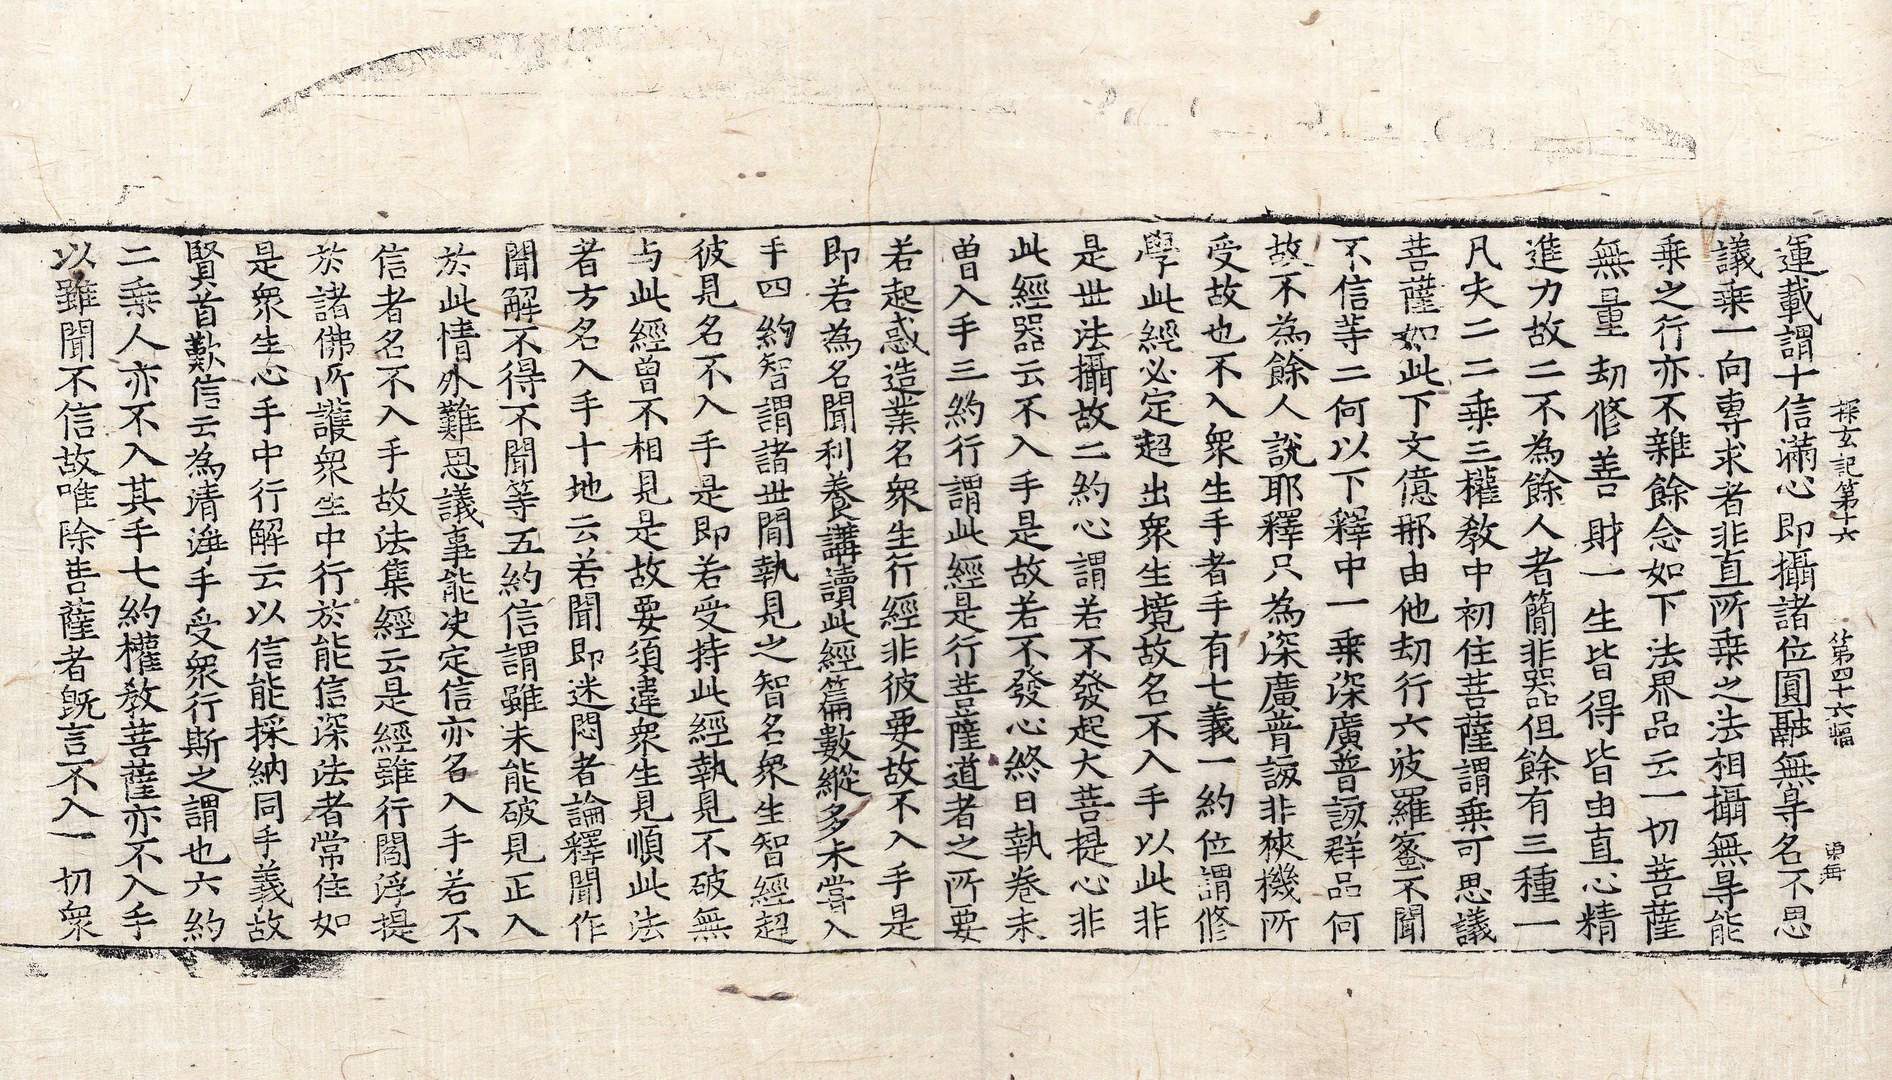 探玄記第十六 第四十六幅 東海
運載謂十信滿心即攝諸位圓融無㝵名不思
議乗一向專求者非直所乗之法相攝無㝵能
乗之行亦不雜餘念如下法界品云一切菩薩
無量劫修善財一生皆得皆由直心精
進力故二不為餘人者簡非器但餘有三種一
凡夫二二乗三權教中初住菩薩謂乗可思議
菩薩如此下文億那由他劫行六波羅蜜不聞
不信等二何以下釋中一乗深廣普該群品何
故不為餘人說耶釋只為深廣普該非狹機所
受故也不入衆生手者手有七義一約位謂修
學此經必定超出衆生境故名不入手以此非
是世法攝故二約心謂若不發起大菩提心非
此經器云不入手是故若不發心終日執卷未
曽入手三約行謂此經是行菩薩道者之所要
若起惑造業名衆生行經非彼要故不入手是
即若為名聞利養講讀此經篇數縱多未嘗入
手四約智謂諸世間執見之智名衆生智經超
彼見名不入手是即若受持此經執見不破無
与此經曽不相見是故要須違衆生見順此法
者方名入手十地云若聞即迷悶者論釋聞作
聞解不得不聞等五約信謂雖未能破見正入
於此情外難思議事能决定信亦名入手若不
信者名不入手故法集經云是經雖行閻浮提
於諸佛所護衆生中行於能信深法者常住如
是衆生心手中行解云以信能採納同手義故
賢首歎信云為清淨手受衆行斯之謂也六約
二乗人亦不入其手七約權教菩薩亦不入手
以雖聞不信故唯除菩薩者旣言不入一切衆